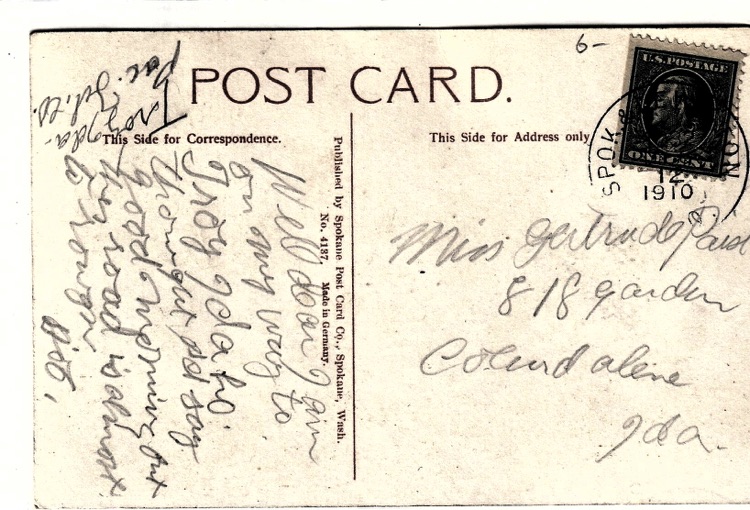 POST CARD.
This Side for Correspondence.
This Side for Address only
6-
U.S. POSTAGE
ONE CENT
SPOK
12
1910
Published by Spokane Post Card Co., Spokane, Wash.
No. 4187. Made in Germany.
Well dear I am
on my way to
Troy Idaho.
thought I'd say
good morning but
the road is almost
to rough
Troy Ida-
Pac.
Miss Gertrude
818 garden
Coeurd alene
Ida.